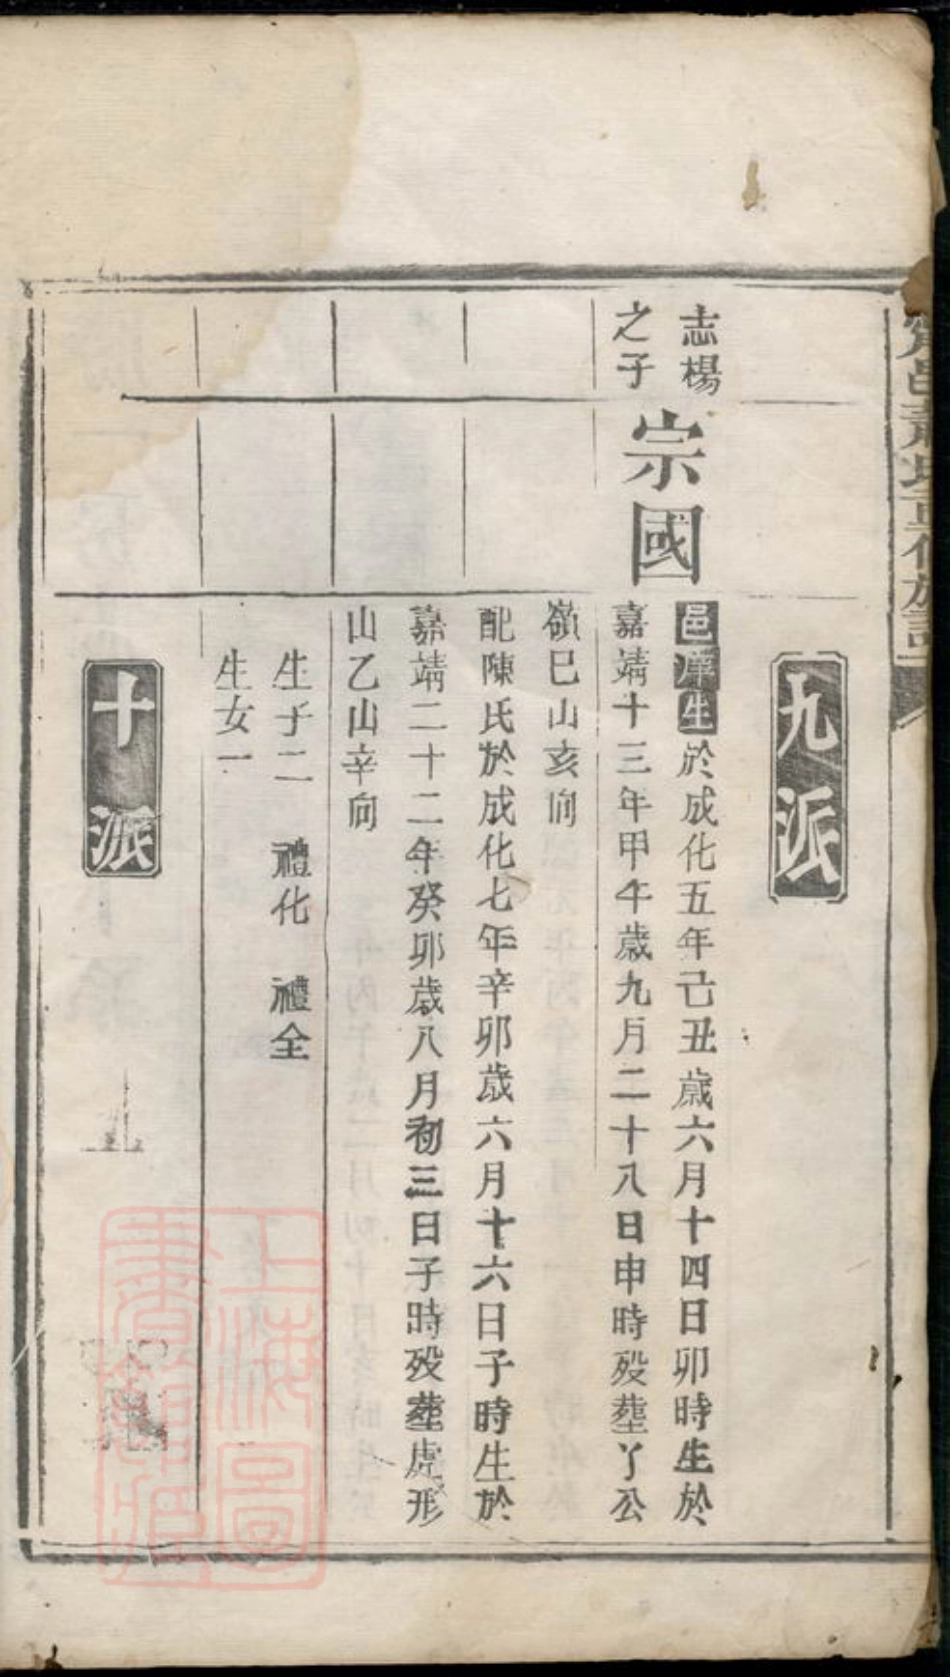 甯邑蕭氏重修族譜
九派
志楊
之子
宗國
邑庠生於成化五年己丑歲六月十四日卯時生於
嘉靖十三年甲午歲九月二十八日申時歿塟丫公
嶺巳山亥向
配陳氏於成化七年辛卯歲六月十六日子時生於
嘉靖二十二年癸卯歲八月初三日子時歿塟虎形
山乙山辛向
生子二 禮化 禮全
生女一
十派
上海圖
書館藏